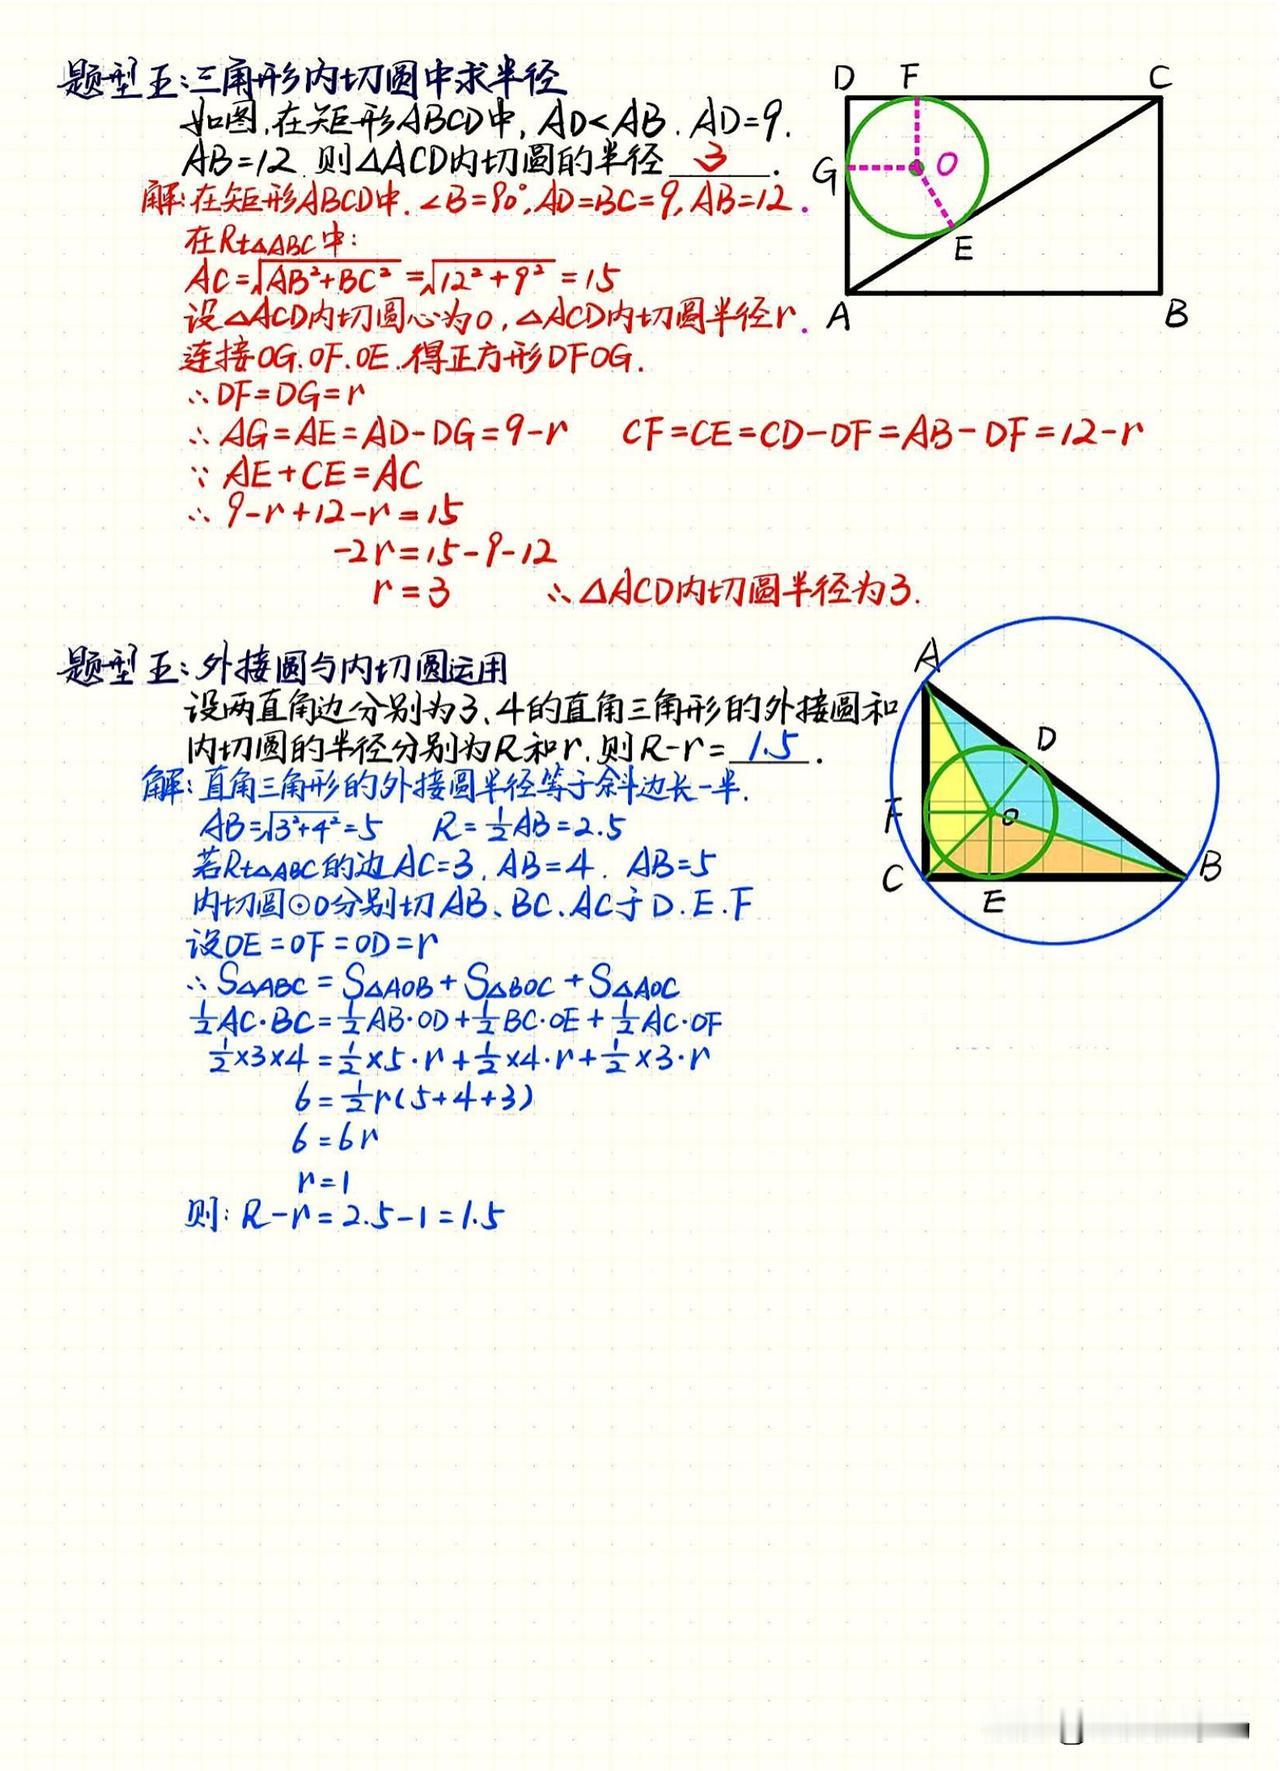 题型五:三角形内切圆中求半径
如图,在矩形ABCD中,AD<AB.AD=9.
AB=12.则△ACD内切圆的半径 3 .
解:在矩形ABCD中.∠B=90°,AD=BC=9,AB=12.
在Rt△ABC中:
AC=√AB²+BC²=√12²+9²=15
设△ACD内切圆心为O,△ACD内切圆半径r.
连接OG.OF.OE.得正方形DFOG.
∴DF=DG=r
∴AG=AE=AD-DG=9-r CF=CE=CD-DF=AB-DF=12-r
∵AE+CE=AC
∴9-r+12-r=15
-2r=15-9-12
r=3 ∴△ACD内切圆半径为3.
D F C
G O
E
A B
题型五:外接圆与内切圆运用
设两直角边分别为3、4的直角三角形的外接圆和
内切圆的半径分别为R和r.则R-r= 1.5 .
解:直角三角形的外接圆半径等于斜边长一半.
AB=√3²+4²=5 R=½AB=2.5
若Rt△ABC的边AC=3,AB=4.AB=5
内切圆⊙O分别切AB、BC、AC于D.E.F
设OE=OF=OD=r
∴S△ABC=S△AOB+S△BOC+S△AOC
½AC·BC=½AB·OD+½BC·OE+½AC·OF
½×3×4=½×5·r+½×4·r+½×3·r
6=½r(5+4+3)
6=6r
r=1
则:R-r=2.5-1=1.5
A
D
F O
C E B